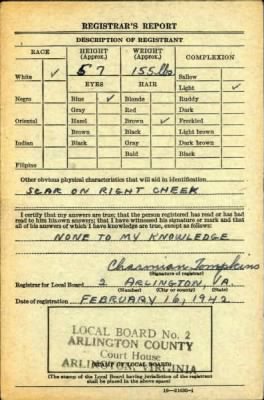 REGISTRAR'S REPORT
DESCRIPTION OF REGISTRANT
RACE HEIGHT (Approx.) WEIGHT (Approx.) COMPLEXION
White ✓ 5 7 155 lbs Sallow
EYES HAIR Light ✓
Negro Blue ✓ Blonde Ruddy
Gray Red Dark
Oriental Hazel Brown ✓ Freckled
Brown Black Light brown
Indian Black Gray Dark brown
Bald Black
Filipino
Other obvious physical characteristics that will aid in identification
SCAR ON RIGHT CHEEK
I certify that my answers are true; that the person registered has read or has had
read to him his own answers; that I have witnessed his signature or mark and that
all of his answers of which I have knowledge are true, except as follows:
NONE TO MY KNOWLEDGE
Charmian Tompkins
(Signature of registrar)
Registrar for Local Board 2 ARLINGTON, VA.
(Number) (City or county) (State)
Date of registration FEBRUARY 16, 1942
LOCAL BOARD No. 2
ARLINGTON COUNTY
Court House
ARLINGTON, VIRGINIA
(STAMP OF LOCAL BOARD)
(The stamp of the Local Board having jurisdiction of the registrant
shall be placed in the above space)